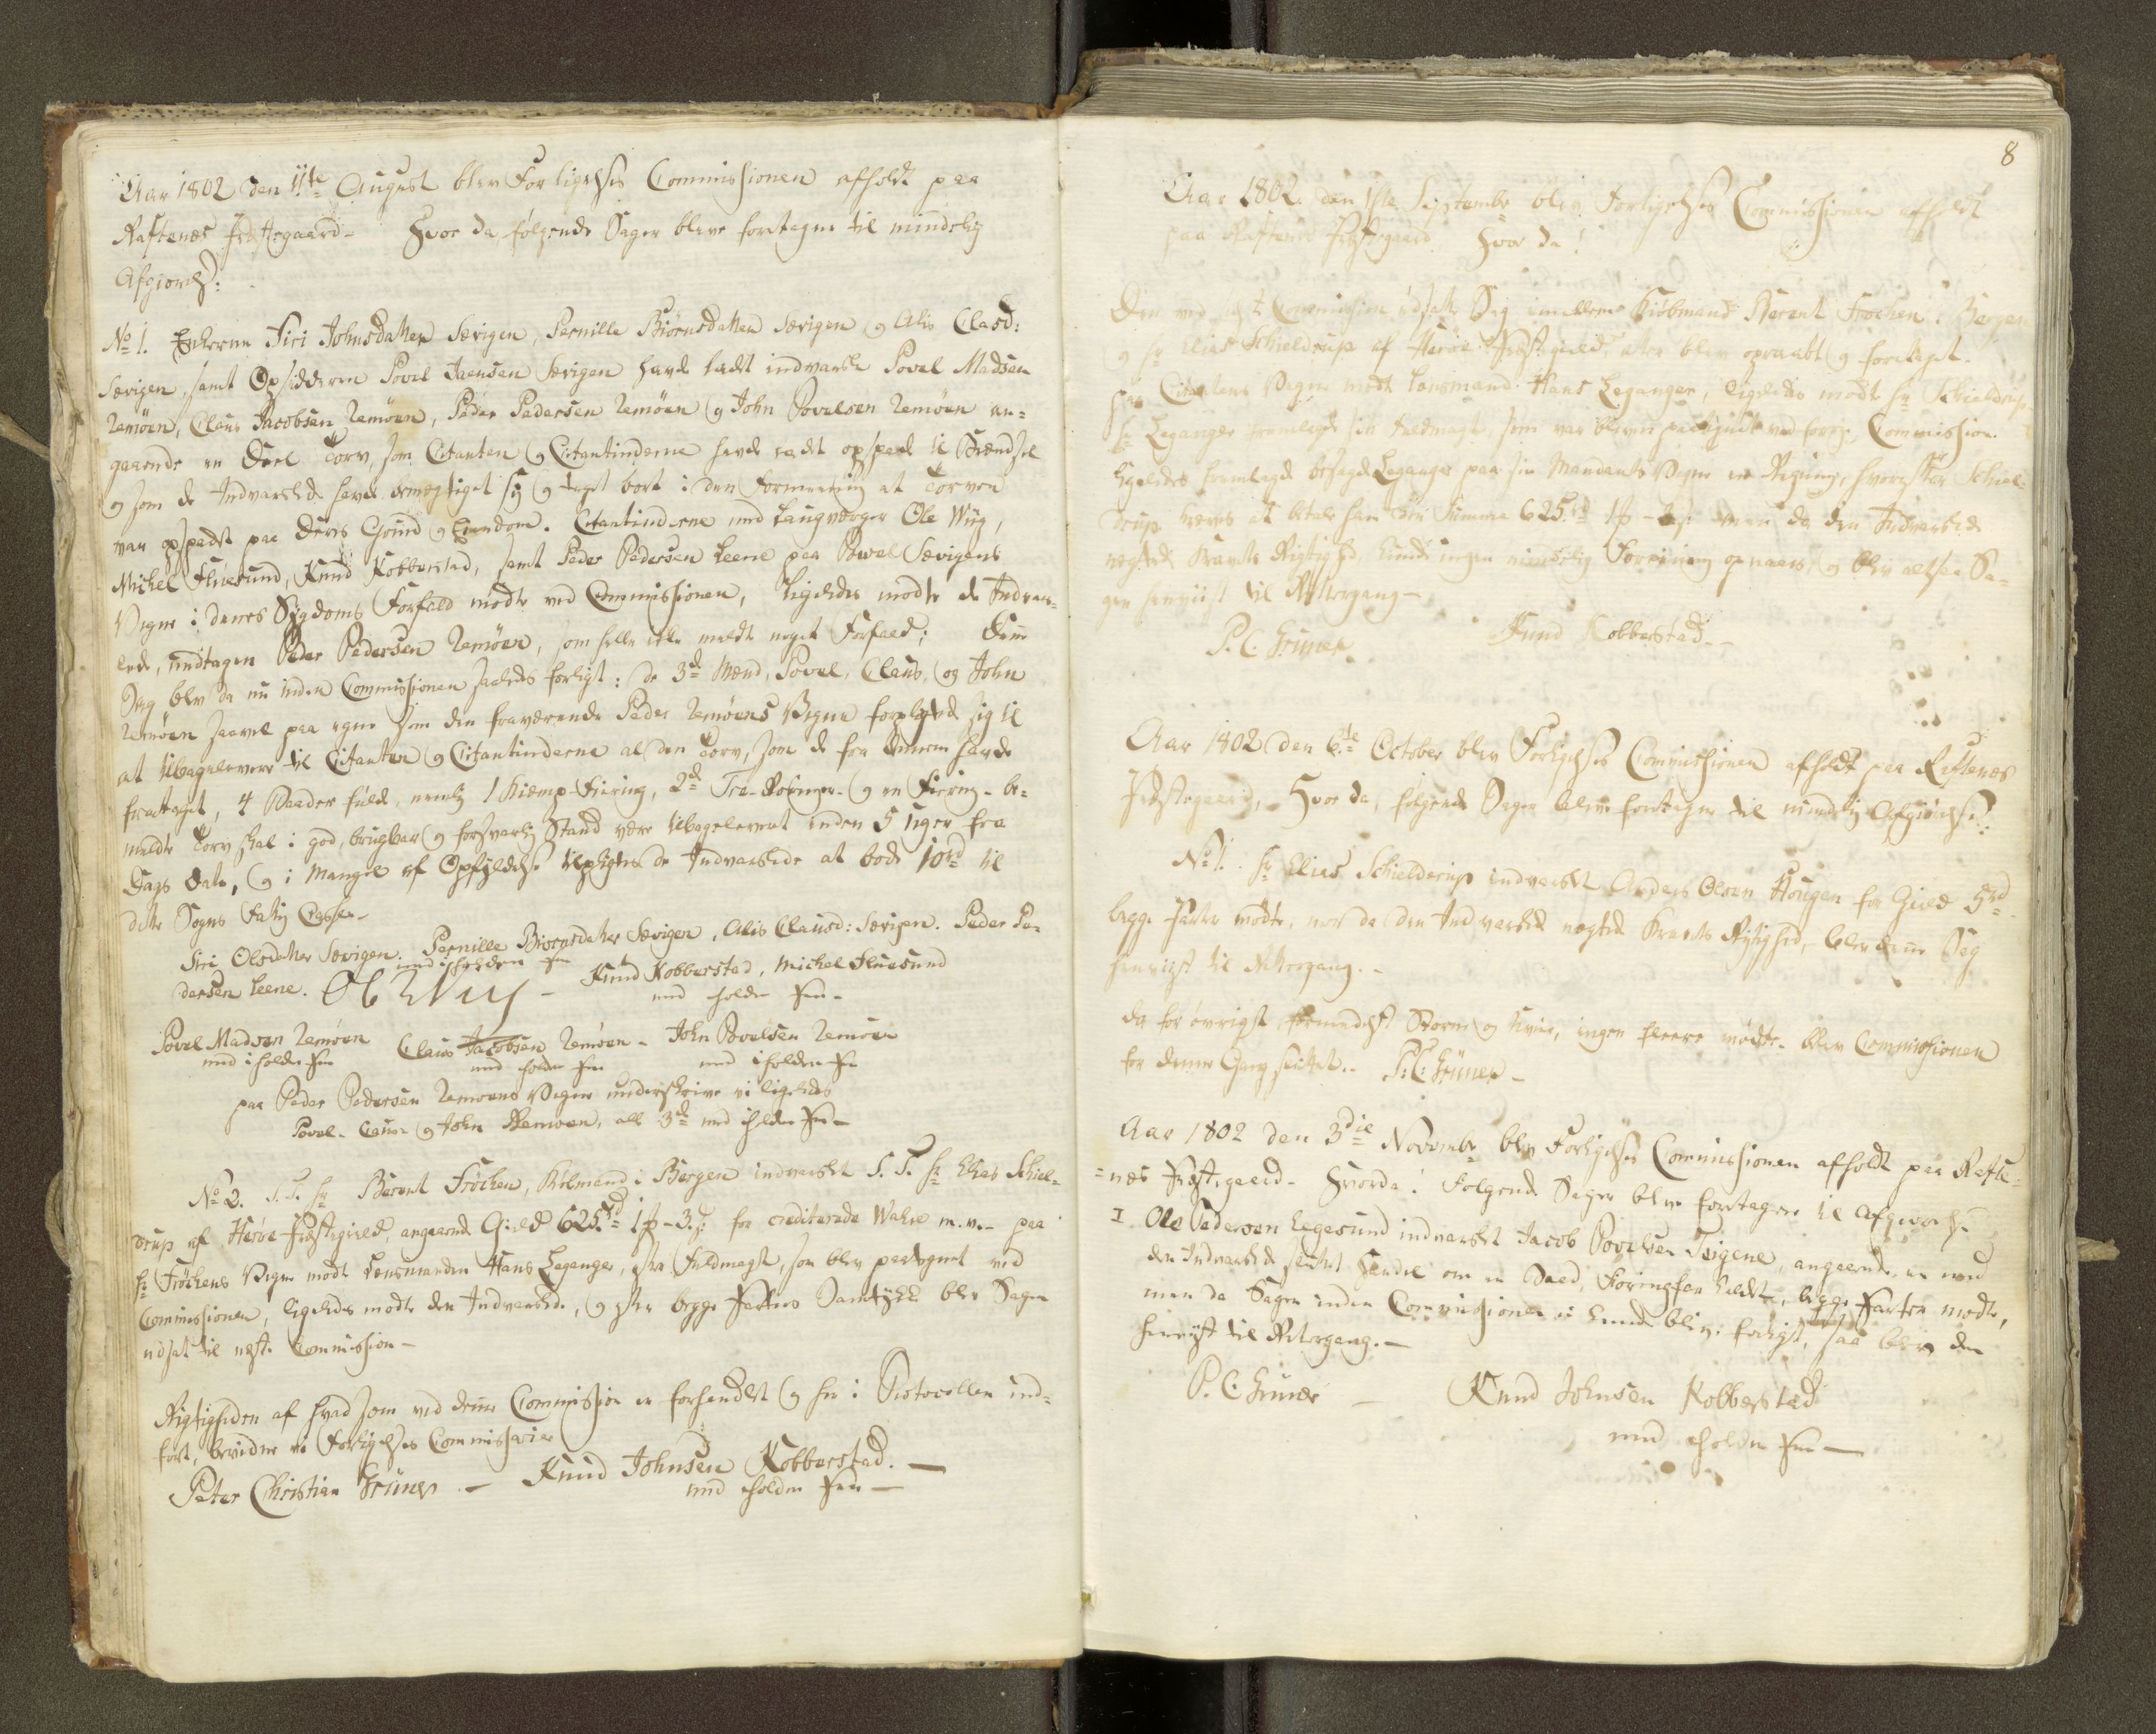 Aar 1802 den 11te August blev Forligelses Commissionen afholdt paa
Raftenæs Præstegaard - Hvor da følgende Sager bleve foretagne til mindelig
Afgiørelse:
No 1. Enkerne Siri Johnsdatter Sævigen, Pernille Biørnsdatter Sævigen og Alis Clasd:
Sævigen, samt Opsidderen Povel Jaensen Sævigen havde ladet indvarsle Povel Madsen
Remöen, Claus Jacobsen Remöen, Peder Pedersen Remöen og John Povelsen Remöen an-
gaaende en Deel Torv, som Citanten og Citantinderne havde ladt opspade til Brændsel
og som de Indvarslede havde bemægtiget sig og taget bort i den Formeening at Torven
var opspadt paa deres Grund og Eiendom. Citantinderne med Laugværger Ole Wiig,
Michel Fluesund, Knud Kobberstad, samt Peder Pedersen Leene paa Povel Sævigens
Vegne i dennes Sygdoms Forfald mødte ved Commissionen, ligeledes mødte de Indvars-
lede, undtagen Peder Pedersen Remöen, som heller ikke meldte noget Forfald; Denne
Sag blev da nu inden Commissionen saaledes forligt: de 3de Mænd, Povel, Claus, og John
Remöen saavel paa egne som den fraværende Peder Remöens Vegne forpligted sig til
at tilbagelevere til Citanten og Citantinderne al den Torv, som de fra dennem havde
frataget, 4 Baader fulde, nemlig 1 Kiæmp-Færing, 2de Tre-Roringer og en Færing - be-
meldte Torv skal i god, brugbar og forsvarlig Stand være tilbageleveret inden 5 Uger fra
Dags Dato, og i Mangel af Opfyldelse tilpligtes de Indvarslede at bøde 10rd til
dette Sogns Fattig Casse -
Siri Olsdatter Sævigen. Pernille Biörnsdatter Sævigen, Alis Clausd: Sævigen. Peder Pe-
med iholden Pen
dersen Leene. Ole Wiig - Knud Kobberstad, Michel Fluesund
med holden Pen -
Povel Madsen Remöen Claus Jacobsen Remöen - John Povelsen Remöen
med iholden Pen med holden Pen med iholden Pen
paa Peder Pedersen Remoens Vegne underskrive vi ligeledes
Povel - Claus og John Remoen, alle 3de med iholden Pen -
No 2. S. T. Hr Berent Fröchen, Kiöbmand i Bergen indvarslet S. T. Hr Elias Schiel-
drup af Herøe Præstegield, angaaende Gield 625rd 1 - 3 for crediterede Wahre m. v. - paa
Hr Fröchens Vegne mødte Lensmanden Hans Leganger, efter Fuldmagt, som blev paategnet ved
Commissionen, ligeledes mødte den Indvarslede, og efter begge Parters Samtykke blev Sagen
udsat til næste Commission -
Rigtigheden af hvad som ved denne Commission er forhandlet og her i Protocollen ind-
ført, bevidne vi Forligelses Commissarier
Peter Christian Grüner - Knud Johnsen Kobberstad. -
med iholden Pen -
8
Aar 1802. den 1ste Septembr blev Forligelses Commissionen afholdt
paa Raftenæs Præstegaard Hvor da!
Den ved sidste Commission udsatte Sag imellem Kiøbmand Berent Fröchen i Bergen
og Hr Elias Schieldrup af Herøe Præstegield, atter blev opraabt og foretaget.
For Citantens Vegne mødte Lensmand Hans Leganger, ligeledes mødte Hr Schieldrup
Hr Leganger fremlagde sin Fuldmagt, som var bleven paategnet ved forrige Commission.
Ligeledes fremlagde besagde Leganger paa sin Mandants Vegne en Regning, hvorefter Schiel-
drup kræves at betale ham den Summa 625rd 1 - 3 men da den Indvarslede
nægtede Kravets Rigtighed kunde ingen mindelig Forening opnaaes, og blev altsaa Sa-
gen henviist til Rettergang -
P. C. Grüner Knud Kobberstad -
Aar 1802 den 6te October blev Forligelses Commissionen afholdt paa Raftenæs
Præstegaard, Hvor da, følgende Sager bleve foretagne til mindelig Afgiørelse:
No 1. Hr Elias Schielderup indvarslet Anders Olsen Hougen for Gield 5rd
begge Parter mødte, men da den Indvarslede nægted Kravets Rigtighed, blev denne Sag
henviist til Rettergang. -
da for øvrigt formedelst Storm og Uveir, ingen fleere mødte. blev Commissionen
for denne Gang sluttet. - P: C: Grüner -
Aar 1802 den 3die Novembr blev Forligelses Commissionen afholdt paa Rafte-
-næs Præstegaard - Hvor da! Følgende Sager bleve foretagne til Afgiørelse
I Ole Pedersen Eegesund indvarslet Jacob Povelsen Teigene, angaaende en med
den Indvarslede sluttet Handel om en Baad, Færing kaldet, begge Parter mødte,
men da Sagen inden Commissionen ei kunde blive forligt, saa blev den
henviist til Rettergang. -
P. C. Grüner - Knud Johnsen Kobberstad
med iholden Pen -